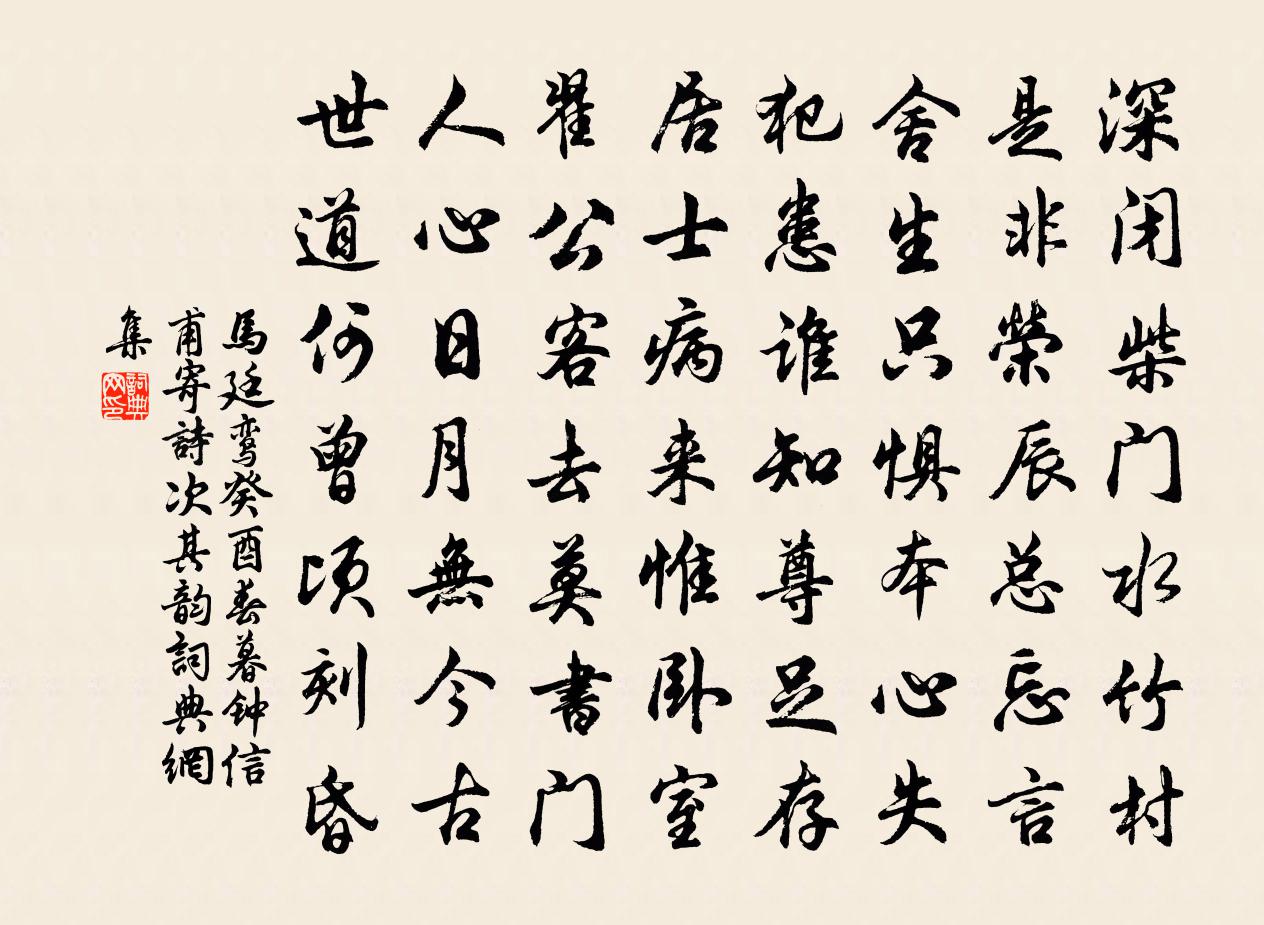 深闭柴门水竹村
是非荣辰总忘言
舍生只惧本心失
犯患谁知尊足存
居士病来惟卧室
翟公客去莫書门
人心日月無今古
世道何曾顷刻昏
馬廷鸾癸酉春暮钟信
甫寄詩次其韵詞典網
集
詞典网印